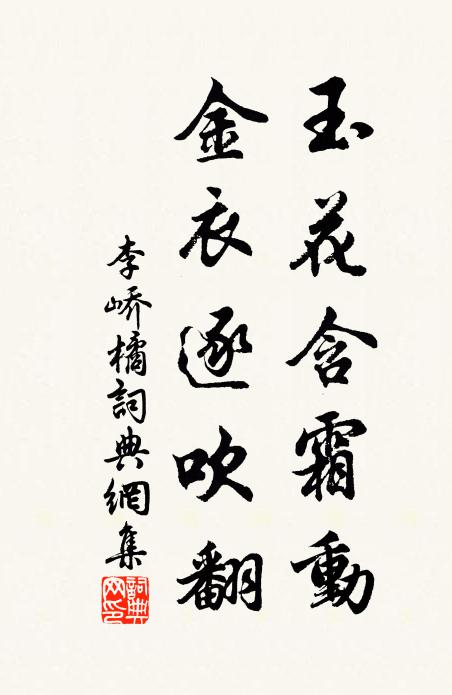 玉花含霜動
金衣逐吹翻
李嶠橘詞典網集
詞典网印